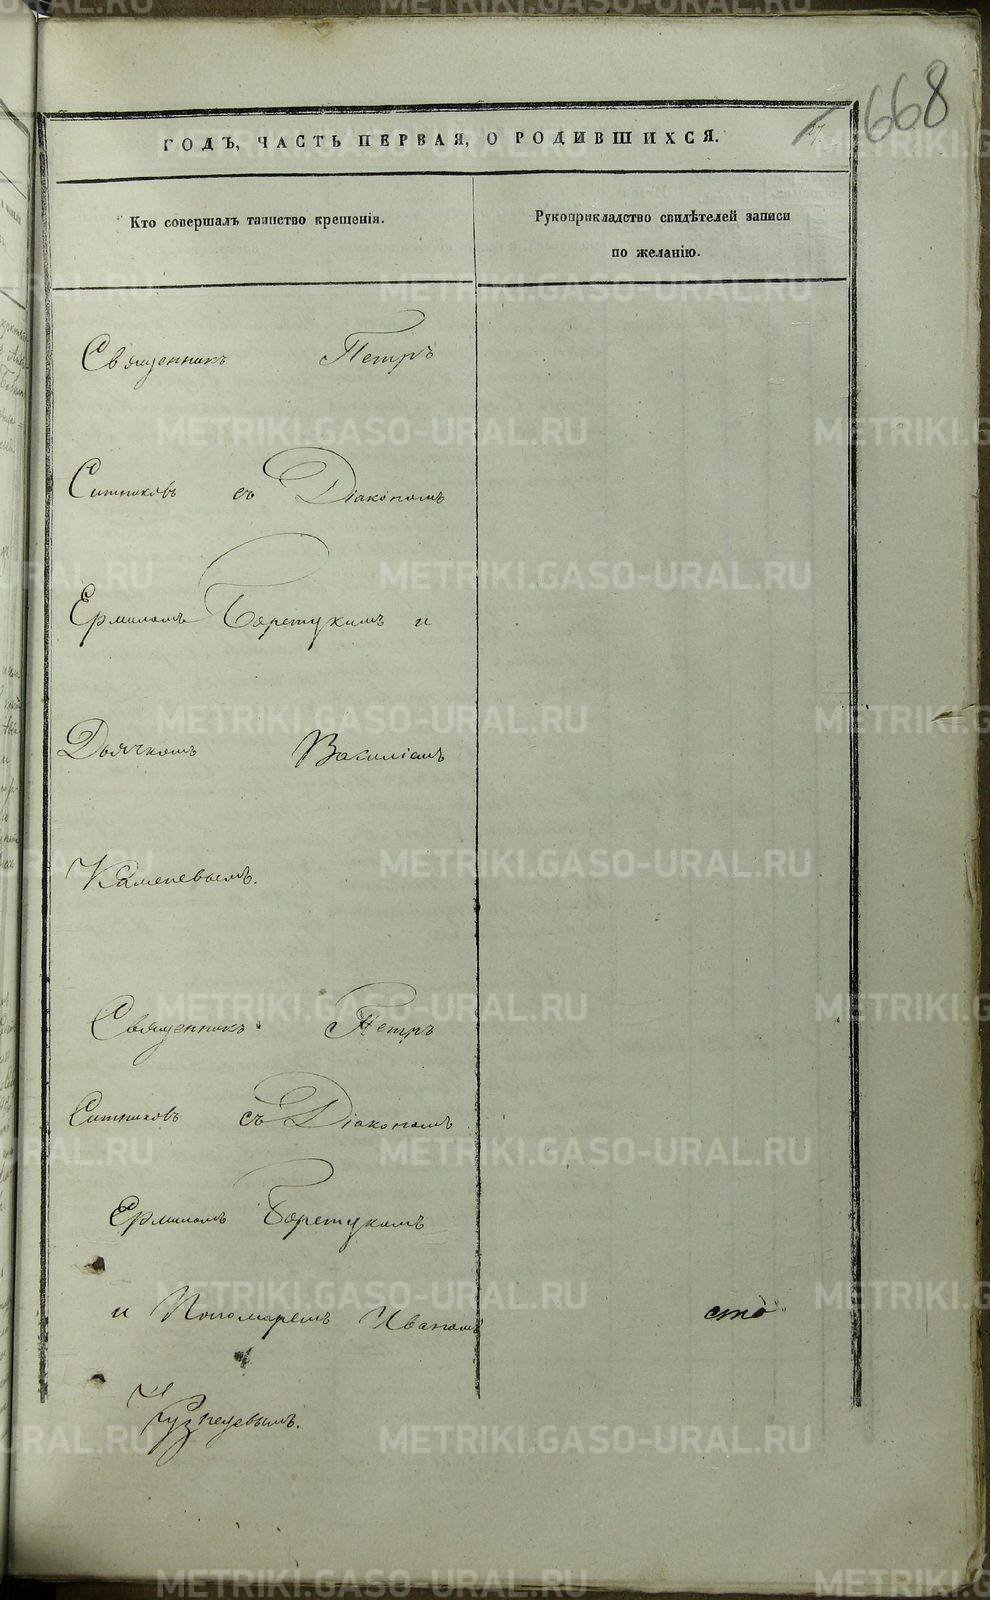 668
ГОДЪ, ЧАСТЬ ПЕРВАЯ, О РОДИВШИХСЯ.
Кто совершалъ таинство крещенія.
Рукоприкладство свидѣтелей записи
по желанію.
Священникъ Петръ
Ситниковъ съ Діакономъ
Ермиломъ Борецукимъ и
Дьячкомъ Василіемъ
Каменевымъ.
Священникъ Петръ
Ситниковъ съ Діакономъ
Ермиломъ Борецукимъ
и Пономаремъ Иваномъ
сто
Кузнецевымъ.
METRIKI.GASO-URAL.RU